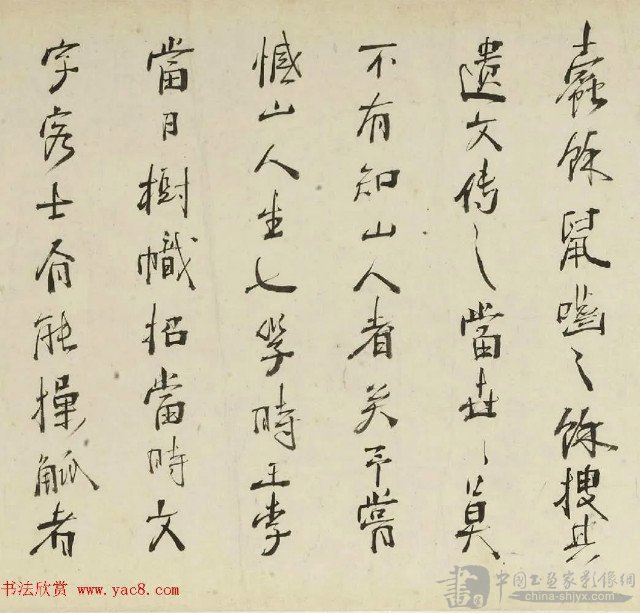 蠹餘鼠嚙之餘搜其
遗文传之當世之莫
不有知山人者矣不嘗
憾山人生也學時王李
當日樹幟招當時文
字客士有能操觚者
书法欣赏 www.yac8.com
中国书画家影像网
china-shjyx.com